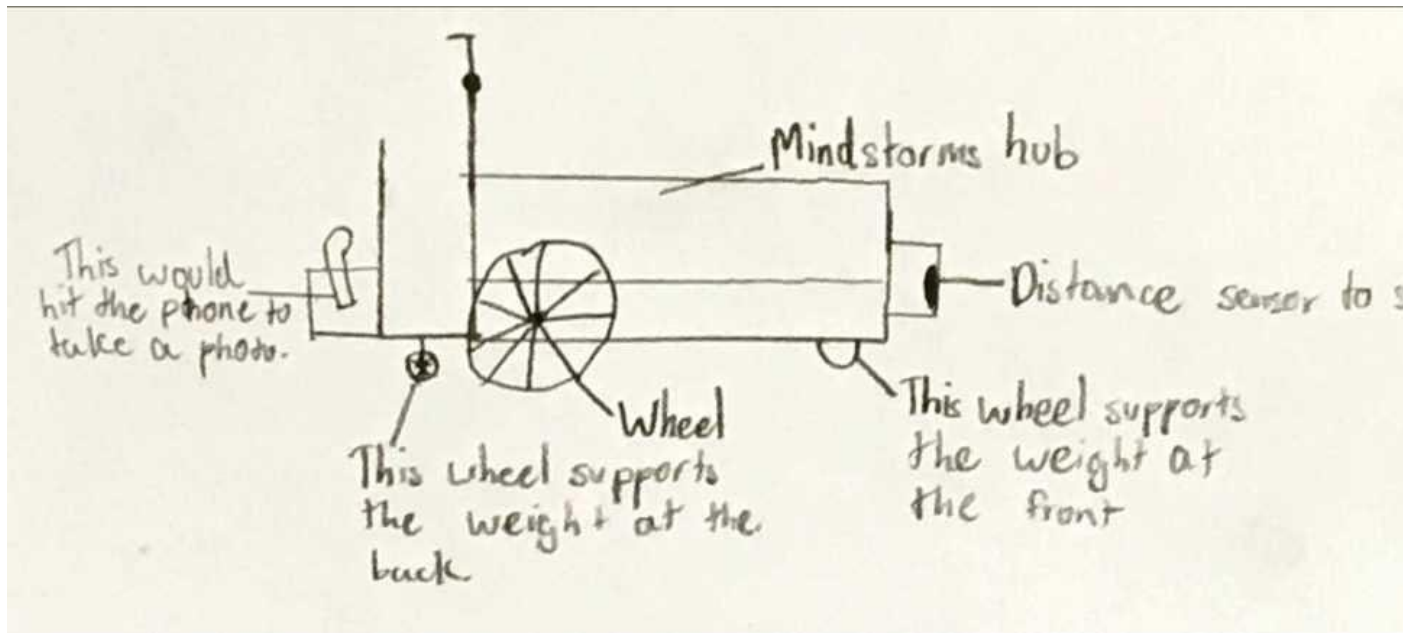 Mindstorms hub
This would
hit the phone to
take a photo.
Distance sensor to s
Wheel
This wheel supports
the weight at the
back
This wheel supports
the weight at
the front